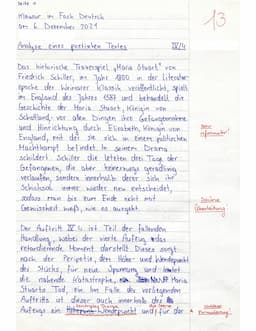 Seite 1
Klausur im Fach Deutsch
am 6. Dezember 2021
13
Analyse eines poetischen Textes
IV/4
Das historische Trauerspiel „Maria Stuart" von
Friedrich Schiller, im Jahr 1800 in der Literatur-
epoche der Weimarer Klassik veröffentlicht, spielt
im England des Jahres 1587 und behandelt die
Geschichte der Maria Stuart, Königin von
Schottland, vor allen Dingen ihre Gefangennahme
und Hinrichtung durch Elisabeth, Königin von
England, mit der sie sich in einer politischen
Machtkampf befindet. In seinem Drama
schildert Schiller die letzten drei Tage der
Gefangenen, die aber keineswegs geradlinig
verlaufen, sondern innerhalb derer sich ihr
Schicksal immer wieder neu entscheidet,
sodass man bis zum Ende nicht mit
Gewissheit weiß, wie es ausgeht.
sehr
informativ!
schöne
Überleitung!
Der Auftritt IV.4 ist Teil der fallenden
Handlung, wobei der vierte Aufzug das
retardierende Moment darstellt. Dieses sorgt
nach der Peripetie, dem Höhe- und Wendepunkt
des Stücks, für neue Spannung und
die nahende Katastrophe, Maria
Stuarts Tod, ein. Im Falle des vorliegenden
Auftritts ist dieser auch innerhalb des
Aufzugs ein Wendepunkt und für der